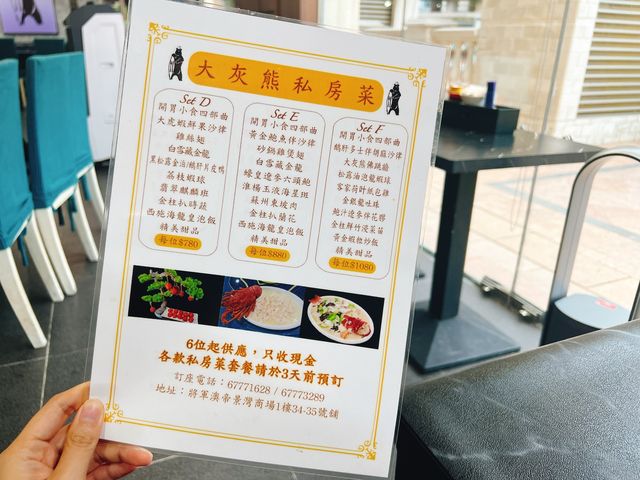 大灰熊私房菜
Set D
開胃小食四部曲
大虎蝦鮮果沙律
雞絲翅
白雪藏金龍
黑松露金箔/鵝肝片皮鴨
荔枝蝦球
翡翠麒麟班
金柱扒時蔬
西施海龍皇泡飯
精美甜品
每位$780
Set E
開胃小食四部曲
黃金鮑魚伴沙律
砂鍋雞煲翅
白雪藏金龍
蠔皇遼參六頭鮑
淮楊玉液海星斑
蘇州東坡肉
金柱扒蘭花
西施海龍皇泡飯
精美甜品
每位$880
Set F
開胃小食四部曲
鵝肝多士伴胡麻沙律
大灰熊佛跳牆
松露油泡龍蝦球
客家荷叶紙包雞
金銀龍吐珠
鮑汁遼參伴花膠
金柱拌竹笙菜苗
黃金蝦粒炒飯
精美甜品
每位$1080
6位起供應，只收現金
各款私房菜套餐請於3天前預訂
訂座電話：67771628 / 67773289
地址：將軍澳帝景灣商場1樓34-35號舖